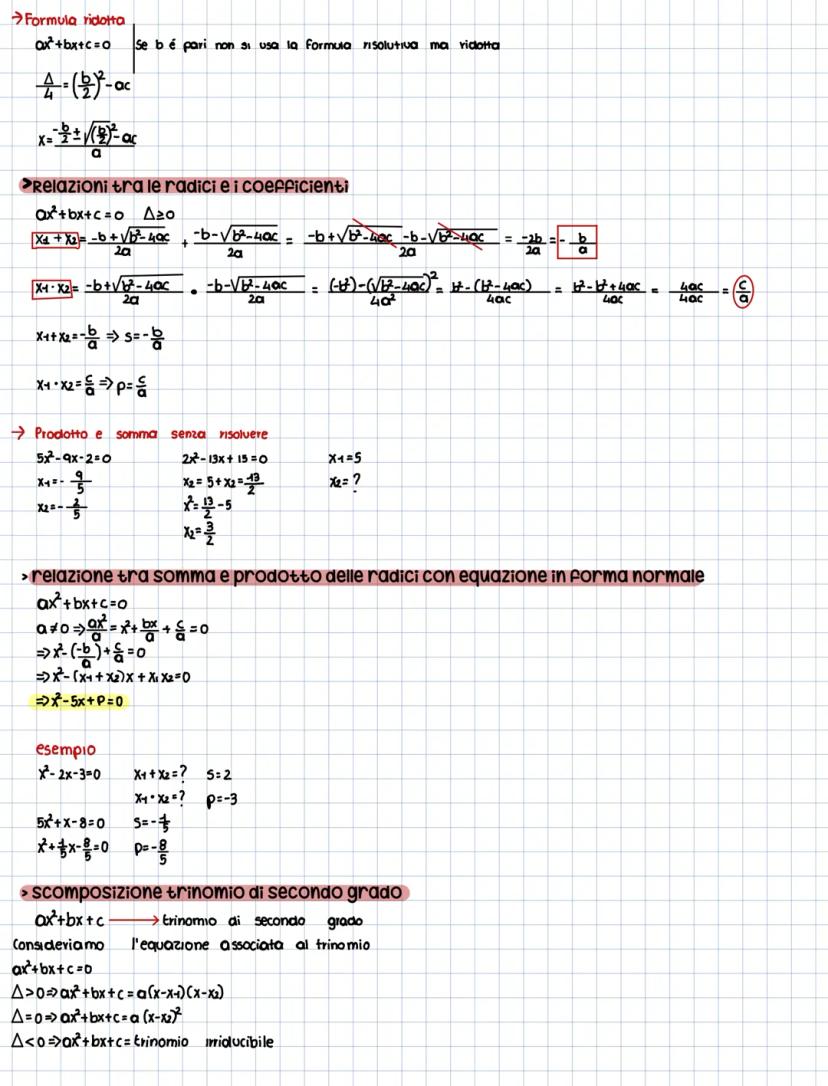 →Formula ridotta
ax²+bx+c=0 | se b é pari non si usa la formula risolutiva ma ridotta
Δ/4=(b/2)²-ac
x=(-b/2±√((b/2)²-ac))/a
>Relazioni tra le radici e i coefficienti
ax²+bx+c=0 Δ≥0
x1+x2=(-b+√(b²-4ac))/2a + (-b-√(b²-4ac))/2a = (-b+√(b²-4ac)-b-√(b²-4ac))/2a = -2b/2a = -b/a
x1·x2=(-b+√(b²-4ac))/2a • (-b-√(b²-4ac))/2a = ((-b²)-(√(b²-4ac))²)/4a² = (b²-(b²-4ac))/4ac = (b²-b²+4ac)/4ac = 4ac/4ac = c/a
x1+x2=-b/a ⇒ s=-b/a
x1·x2=c/a ⇒ p=c/a
→ Prodotto e somma senza risolvere
5x²-9x-2=0 2x²-13x+15=0 x1=5
x1=-9/5 x2=5+x2=-13/2 x2=?
x2=-2/5 x²=13/2-5
x2=3/2
>relazione tra somma e prodotto delle radici con equazione in forma normale
ax²+bx+c=0
a≠0⇒ax²/a=x²+bx/a+c/a=0
⇒x²-(-b/a)+c/a=0
⇒x²-(x1+x2)x+x1x2=0
⇒x²-5x+P=0
esempio
x²-2x-3=0 x1+x2=? s=2
x1·x2=? p=-3
5x²+x-8=0 s=-1/5
x²+1/5x-8/5=0 p=-8/5
>scomposizione trinomio di secondo grado
ax²+bx+c → trinomio di secondo grado
Consideviamo l'equazione associata al trinomio
ax²+bx+c=0
Δ>0⇒ax²+bx+c=a(x-x1)(x-x2)
Δ=0⇒ax²+bx+c=a(x-x2)²
Δ<0⇒ax²+bx+c=trinomio irriducibile